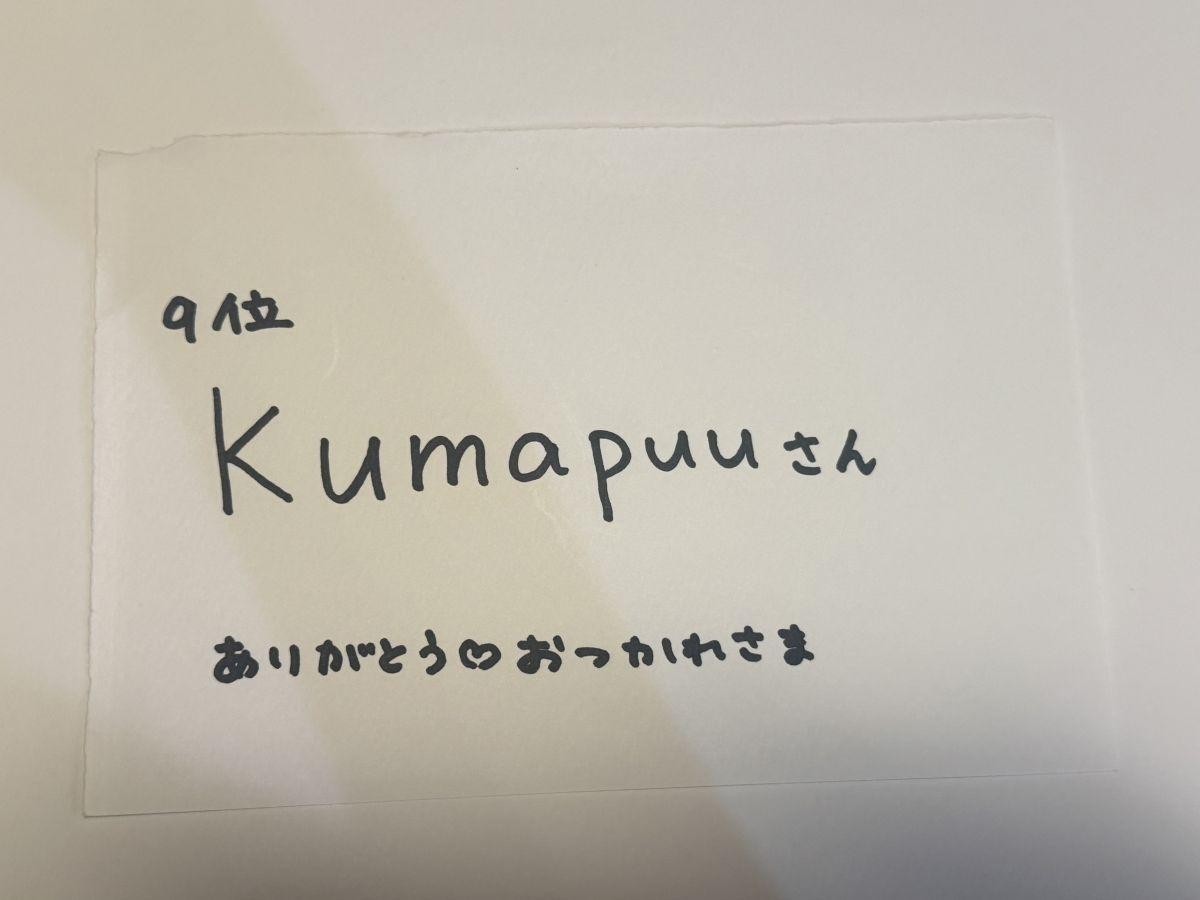 9位
Kumapuuさん
ありがとう♡おつかれさま